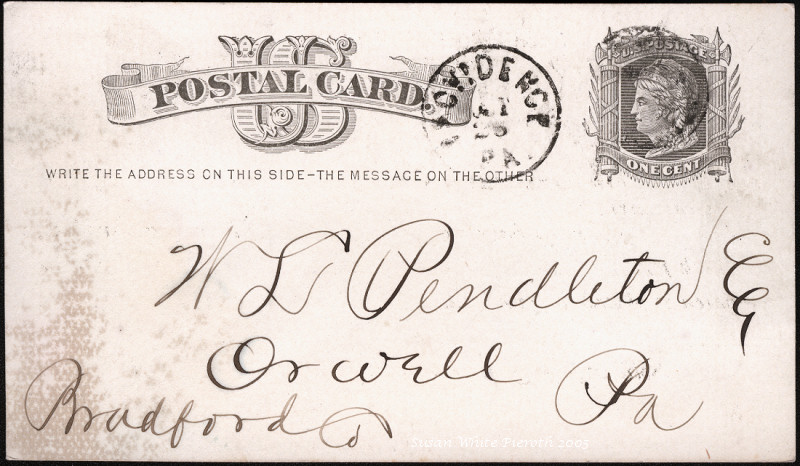 US
POSTAL CARD
U.S. POSTAGE
ONE CENT
PROVIDENCE
25
PA
WRITE THE ADDRESS ON THIS SIDE–THE MESSAGE ON THE OTHER
W L Pendleton Esq
Orwell
Bradford Co Pa
Susan White Pieroth 2005